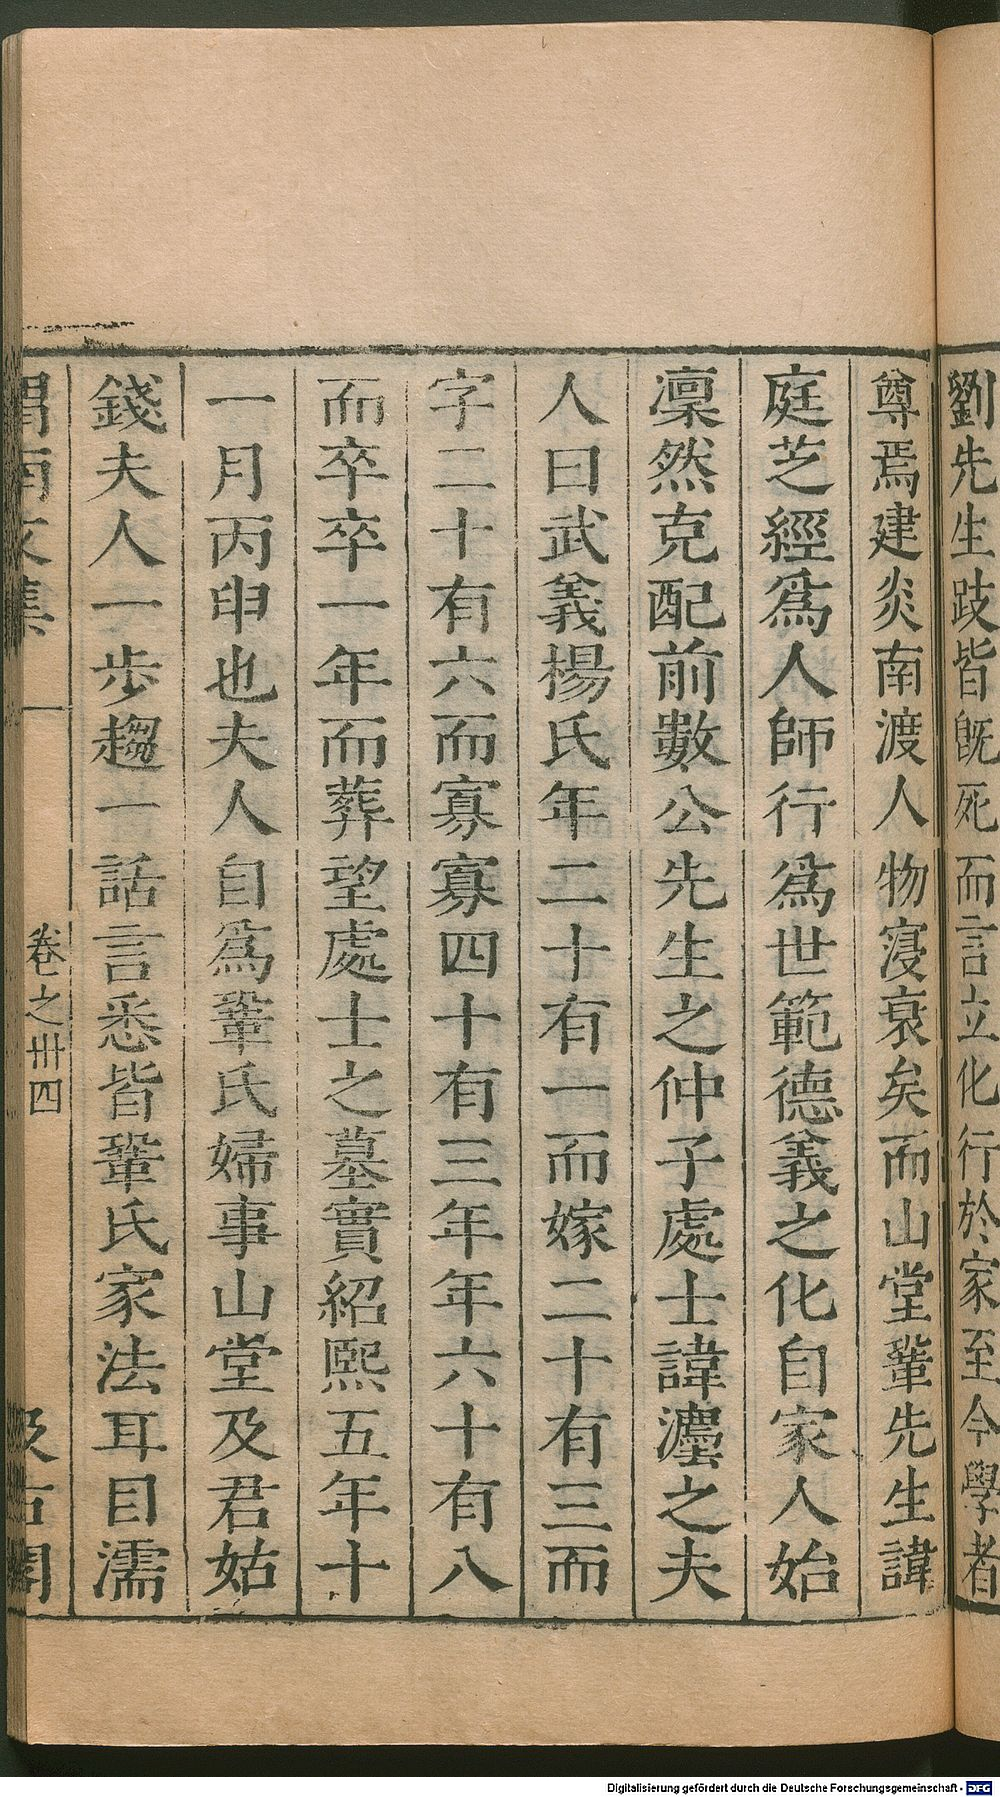 劉先生跂皆旣死而言立化行於家至今學者
尊焉建炎南渡人物寖衰矣而山堂鞏先生諱
庭芝經爲人師行爲世範德義之化自家人始
凜然克配前數公先生之仲子處士諱灋之夫
人曰武義楊氏年二十有一而嫁二十有三而
字二十有六而寡寡四十有三年年六十有八
而卒卒一年而葬望處士之墓實紹熙五年十
一月丙申也夫人自爲鞏氏婦事山堂及君姑
錢夫人一步趨一話言悉皆鞏氏家法耳目濡
渭南文集 卷之卅四 汲古閣
Digitalisierung gefördert durch die Deutsche Forschungsgemeinschaft - DFG